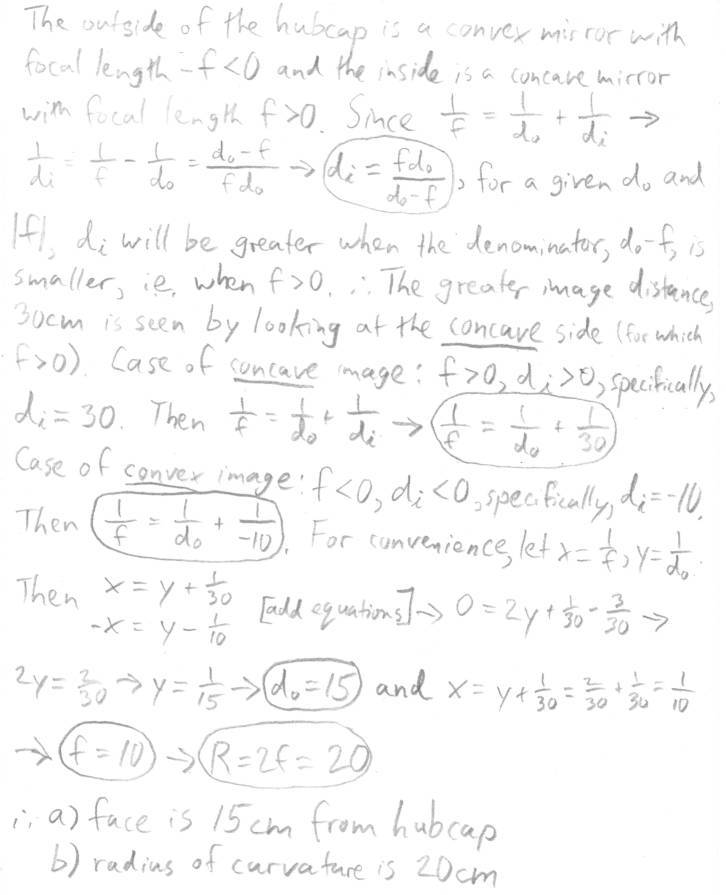 The outside of the hubcap is a convex mirror with
focal length -f<0 and the inside is a concave mirror
with focal length f>0. Since 1/f = 1/do + 1/di →
1/di = 1/f - 1/do = do-f/fdo → di = fdo/do-f, for a given do and
|f|, di will be greater when the denominator, do-f, is
smaller, ie, when f>0. ∴ The greater image distance,
30cm is seen by looking at the concave side (for which
f>0). Case of concave image: f>0, di>0, specifically,
di = 30. Then 1/f = 1/do + 1/di → 1/f = 1/do + 1/30
Case of convex image: f<0, di<0, specifically, di=-10.
Then 1/f = 1/do + 1/-10. For convenience, let x = 1/f, y = 1/do.
Then x = y + 1/30
-x = y - 1/10 [add equations] → 0 = 2y + 1/30 - 3/30 →
2y = 2/30 → y = 1/15 → do=15 and x = y + 1/30 = 2/30 + 1/30 = 1/10
→ f=10 → R=2f=20
∴ a) face is 15cm from hubcap
b) radius of curvature is 20cm